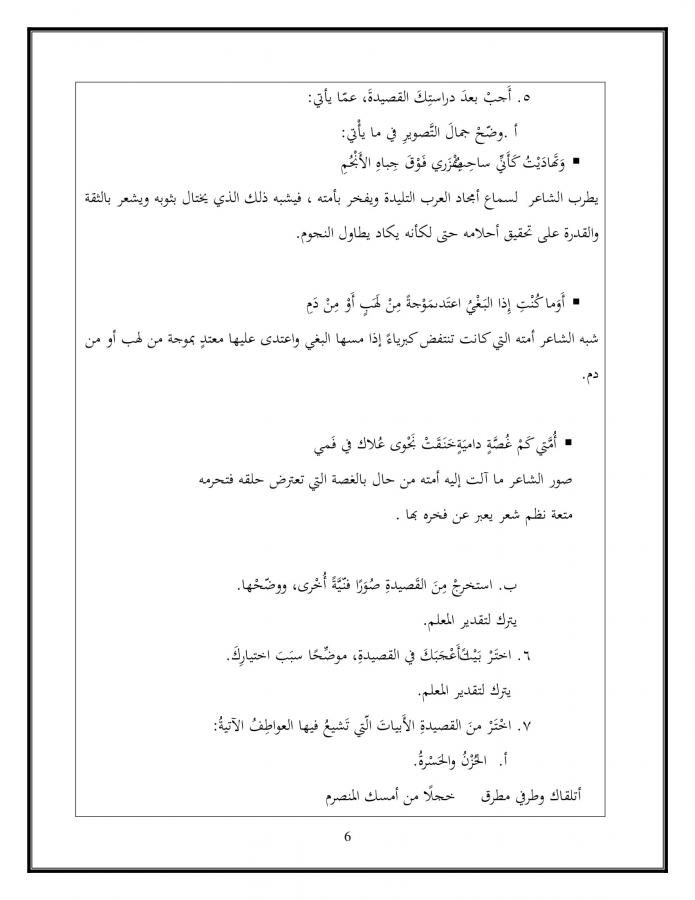 ٥. أَجبْ بعدَ دراستِكَ القصيدةَ، عمّا يأتي:
أ .وضّحْ جمالَ التَّصويرِ في ما يأْتي:
▪ وَتَهَادَيْتُ كَأَنِّي ساحِبٌ مِئْزَري فَوْقَ جِباهِ الأَنْجُمِ
يطرب الشاعر لسماع أمجاد العرب التليدة ويفخر بأمته ، فيشبه ذلك الذي يختال بثوبه ويشعر بالثقة
والقدرة على تحقيق أحلامه حتى لكأنه يكاد يطاول النجوم.
▪ أَوَما كُنْتِ إِذا البَغْيُ اعتَدى مَوْجةً مِنْ لَهَبٍ أَوْ مِنْ دَمِ
شبه الشاعر أمته التي كانت تنتفض كبرياءً إذا مسها البغي واعتدى عليها معتدٍ بموجة من لهب أو من
دم.
▪ أُمَّتي كَمْ غُصَّةٍ داميَةٍ خَنَقَتْ نَجْوى عُلاك في فَمي
صور الشاعر ما آلت إليه أمته من حال بالغصة التي تعترض حلقه فتحرمه
متعة نظم شعر يعبر عن فخره بها .
ب. استخرجْ مِنَ القَصيدةِ صُوَرًا فنّيَّةً أُخْرى، ووضّحْها.
يترك لتقدير المعلم.
٦. اختَرْ بَيْتًا أَعْجَبَكَ في القصيدةِ، موضِّحًا سبَبَ اختيارِكَ.
يترك لتقدير المعلم.
٧. اخْتَرْ منَ القصيدةِ الأَبياتَ الّتي تَشيعُ فيها العواطِفُ الآتيةُ:
أ. الحُزْنُ والحَسْرةُ.
أتلقاك وطرفي مطرق خجلًا من أمسك المنصرم
6